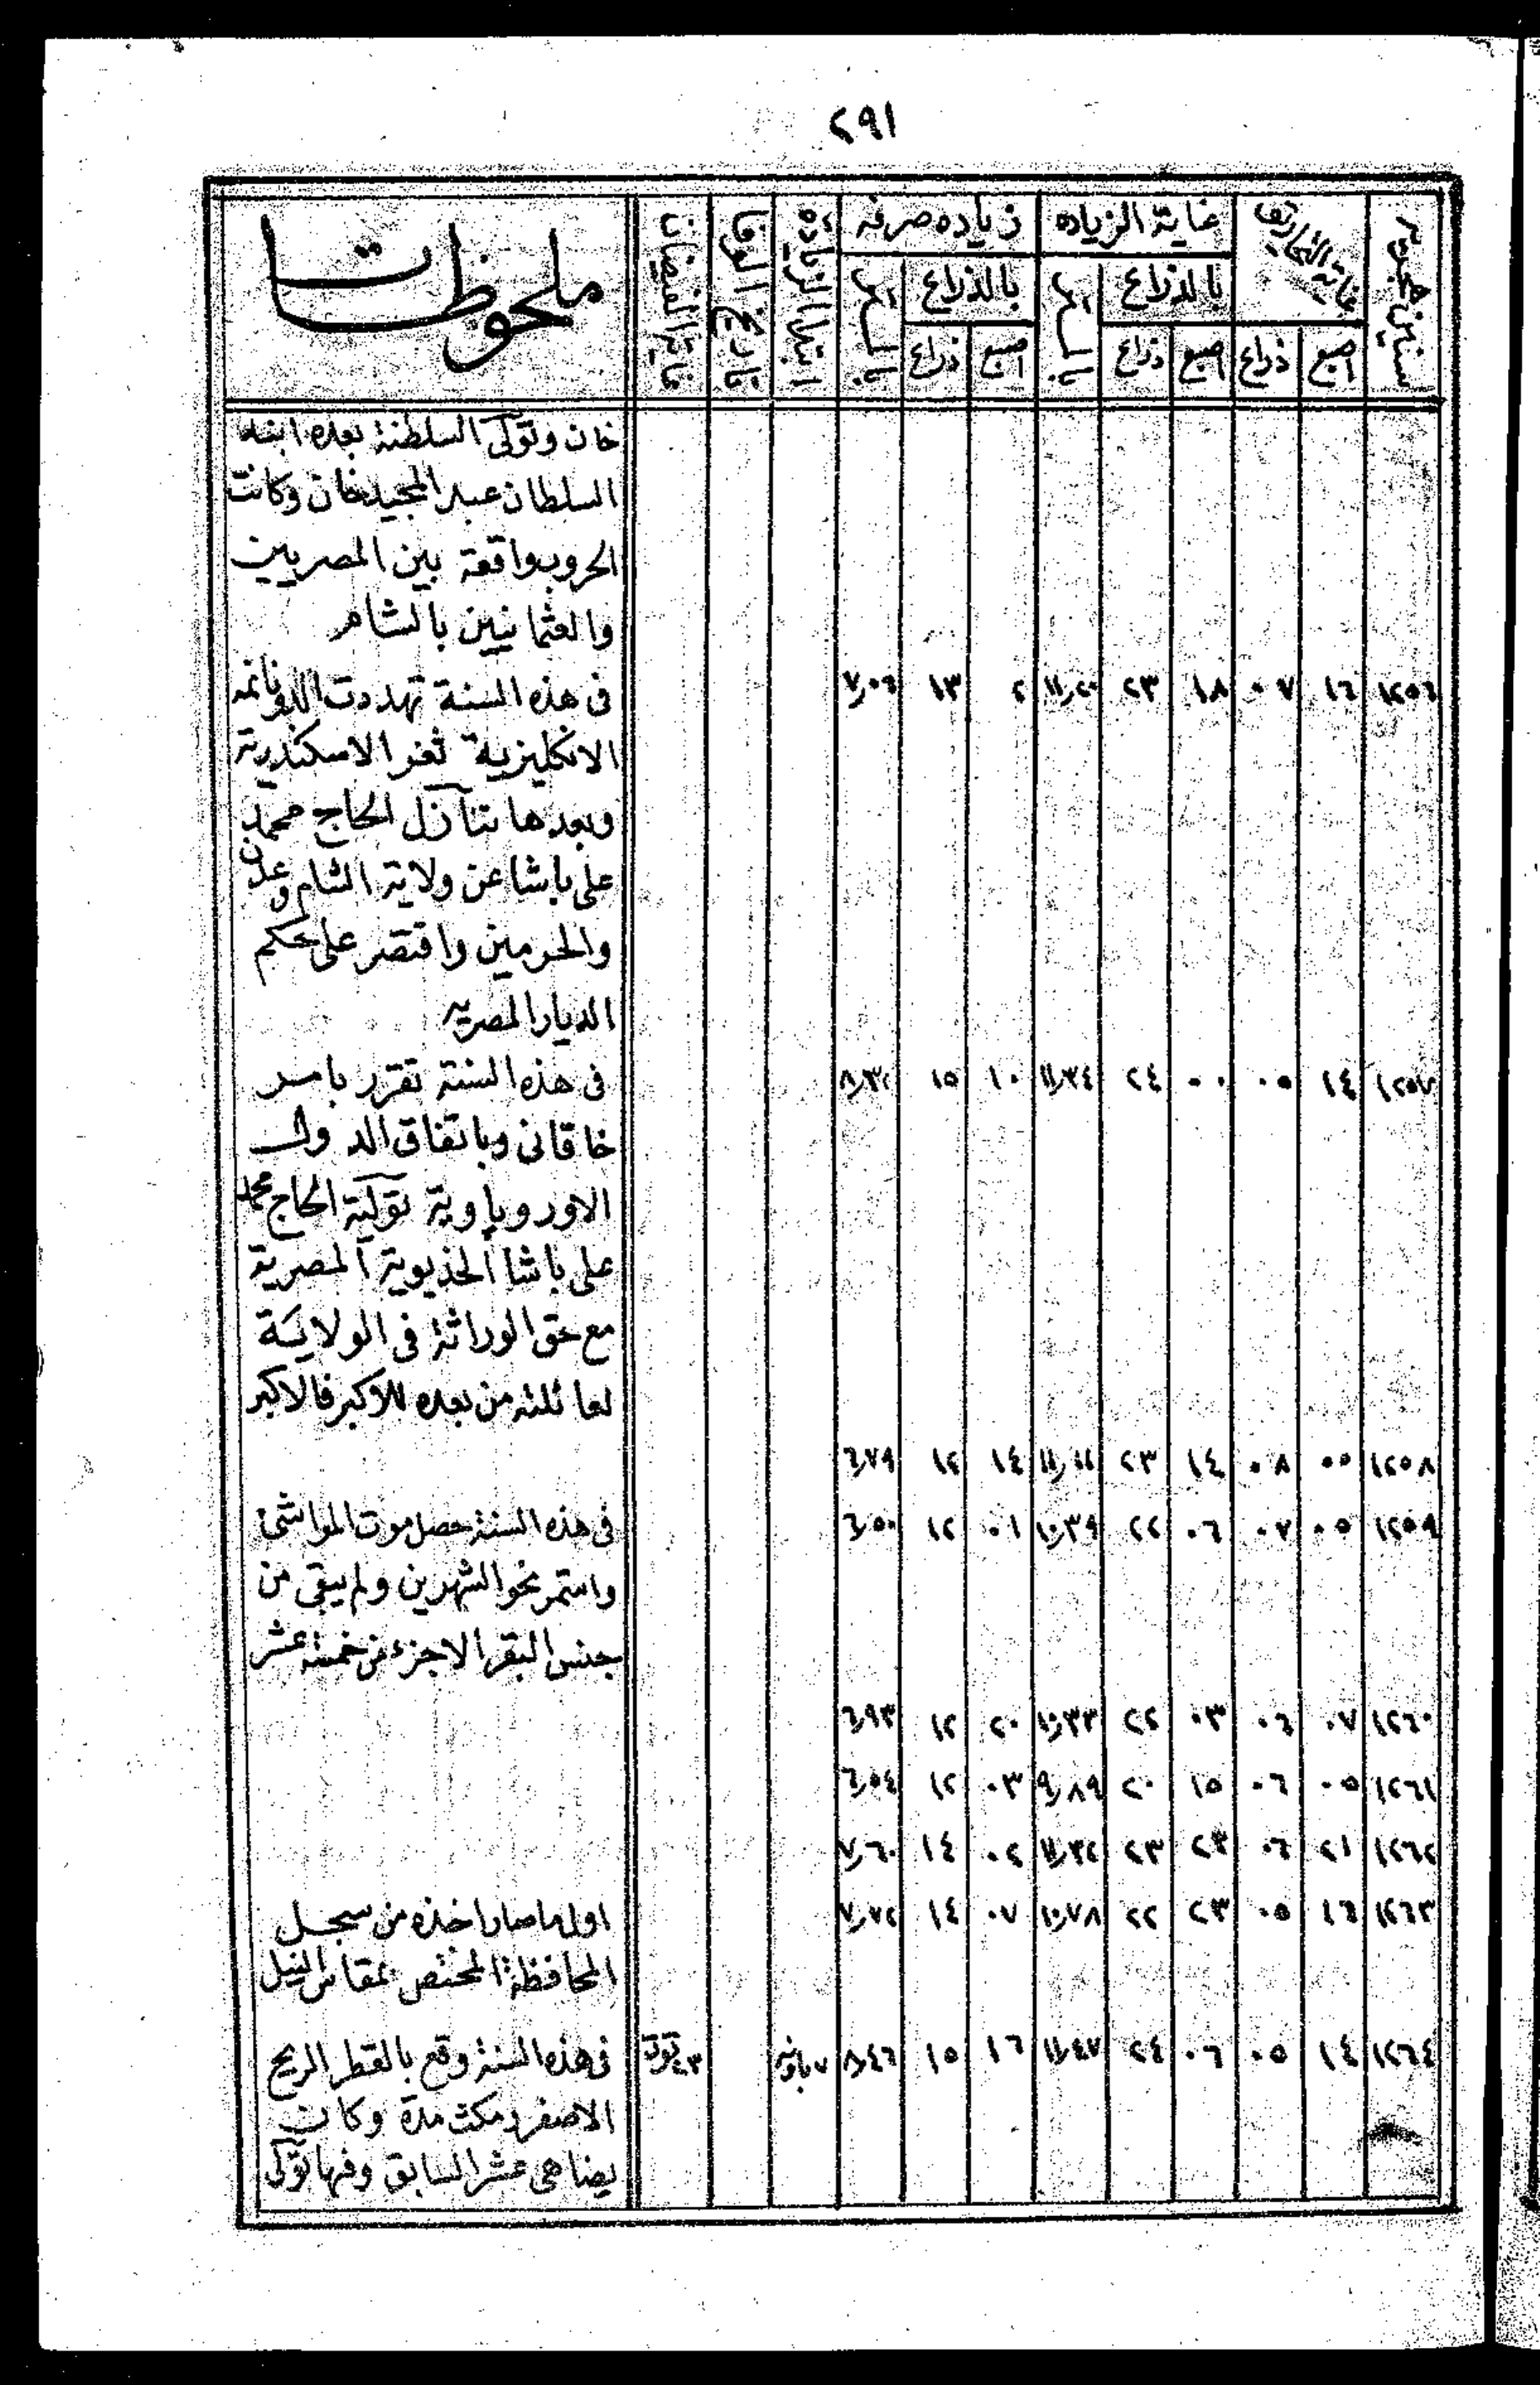 ٢٩١
سنين هجرية | غاية التحاريق | غاية الزياده | زياده صرفه | ابتدا الزيادة | تاريخ الوفا | غاية الفيضان | ملحوظات
بالذراع | بالمـــر | بالذراع | بالمـــر
اصبع | ذراع | اصبع | ذراع | اصبع | ذراع
خان وتولى السلطنة بعده ابنه
السلطان عبد المجيد خان وكانت
الحروب واقعة بين المصريين
والعثمانيين بالشام
١٢٥٦ | ١٦ | ٠٧ | ١٨ | ٢٣ | ١١,٢٠ | ٢ | ١٣ | ٧,٠٦ | فى هذه السنة تهددت الدونانمه
الانكليزية ثغر الاسكندرية
وبعدها تنازل الحاج محمد
على باشا عن ولاية الشام وعدن
والحرمين واقتصر على حكم
الديار المصريه
١٢٥٧ | ١٤ | ٠٥ | ٠٠ | ٢٤ | ١١,٣٤ | ١٠ | ١٥ | ٨,٣٢ | فى هذه السنة تقرر بامر
خاقانى وباتفاق الدول
الاوروپاوية تولية الحاج محمد
على باشا الخذيوية المصرية
مع حق الوراثة فى الولاية
لعائلته من بعده للاكبر فالاكبر
١٢٥٨ | ٠٥ | ٠٨ | ١٤ | ٢٣ | ١٤ | ١٢ | ٦,٧٩
١٢٥٩ | ٠٥ | ٠٧ | ٠٦ | ٢٢ | ١٠,٣٩ | ٠١ | ١٢ | ٦,٥٠ | فى هذه السنة حصل موت المواشى
واستمر نحو الشهرين ولم يبقى من
جنس البقر الا جزء من خمسة عشر
١٢٦٠ | ٠٧ | ٠٦ | ٠٣ | ٢٢ | ١٠,٣٣ | ٢٠ | ١٢ | ٦,٩٣
١٢٦١ | ٠٥ | ٠٦ | ١٥ | ٢٠ | ٩,٨٩ | ٠٣ | ١٢ | ٦,٥٤
١٢٦٢ | ٢١ | ٠٦ | ٢٣ | ٢٣ | ١١,٣٢ | ٠٢ | ١٤ | ٧,٦٠
١٢٦٣ | ١٦ | ٠٥ | ٢٣ | ٢٢ | ١٠,٧٨ | ٠٧ | ١٤ | ٧,٧٢ | اول ما صار اخذه من سجل
المحافظة المختص بمقاس النيل
١٢٦٤ | ١٤ | ٠٥ | ٠٦ | ٢٤ | ١١,٤٧ | ١٦ | ١٥ | ٨,٤٦ | ٧ باونه | توت | فى هذه السنة وقع بالقطر الريح
الاصفر ومكث مدة وكان
يضاهى عشر السابق وفيها تولى